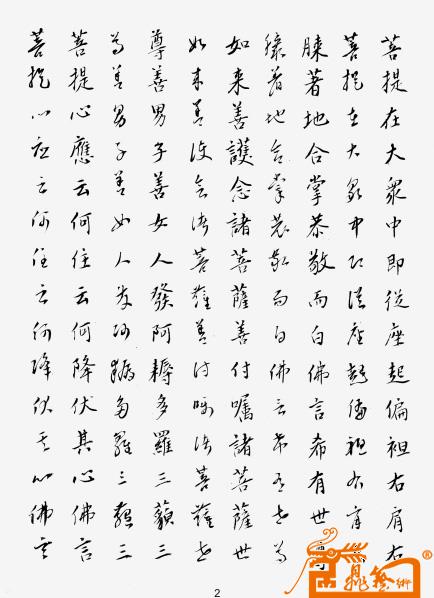 菩提在大眾中即從座起偏袒右肩右
菩提在大眾中即從座起偏袒右肩
膝著地合掌恭敬而白佛言希有世尊
膝著地合掌恭敬而白佛言希有世尊
如來善護念諸菩薩善付囑諸菩薩世
如來善護念諸菩薩善付囑諸菩薩世
尊善男子善女人發阿耨多羅三藐三
尊善男子善女人發阿耨多羅三藐三
菩提心應云何住云何降伏其心佛言
菩提心應云何住云何降伏其心佛言
2